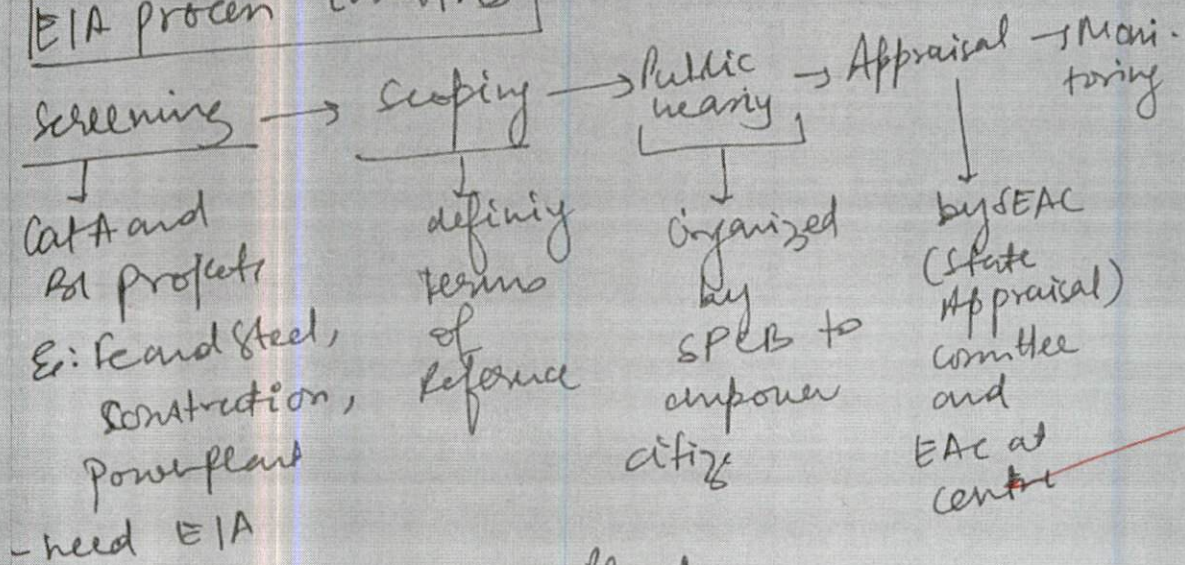 EIA process
Screening → Scoping → Public hearing → Appraisal → Moni-
toring
Cat A and
B1 projects
Eg: Fe and Steel,
Construction,
Powerplant
- need EIA
defining
terms
of
Reference
Organized
by
SPCB to
empower
by SEAC
(State
Appraisal)
Committee
and
EAC at
centre